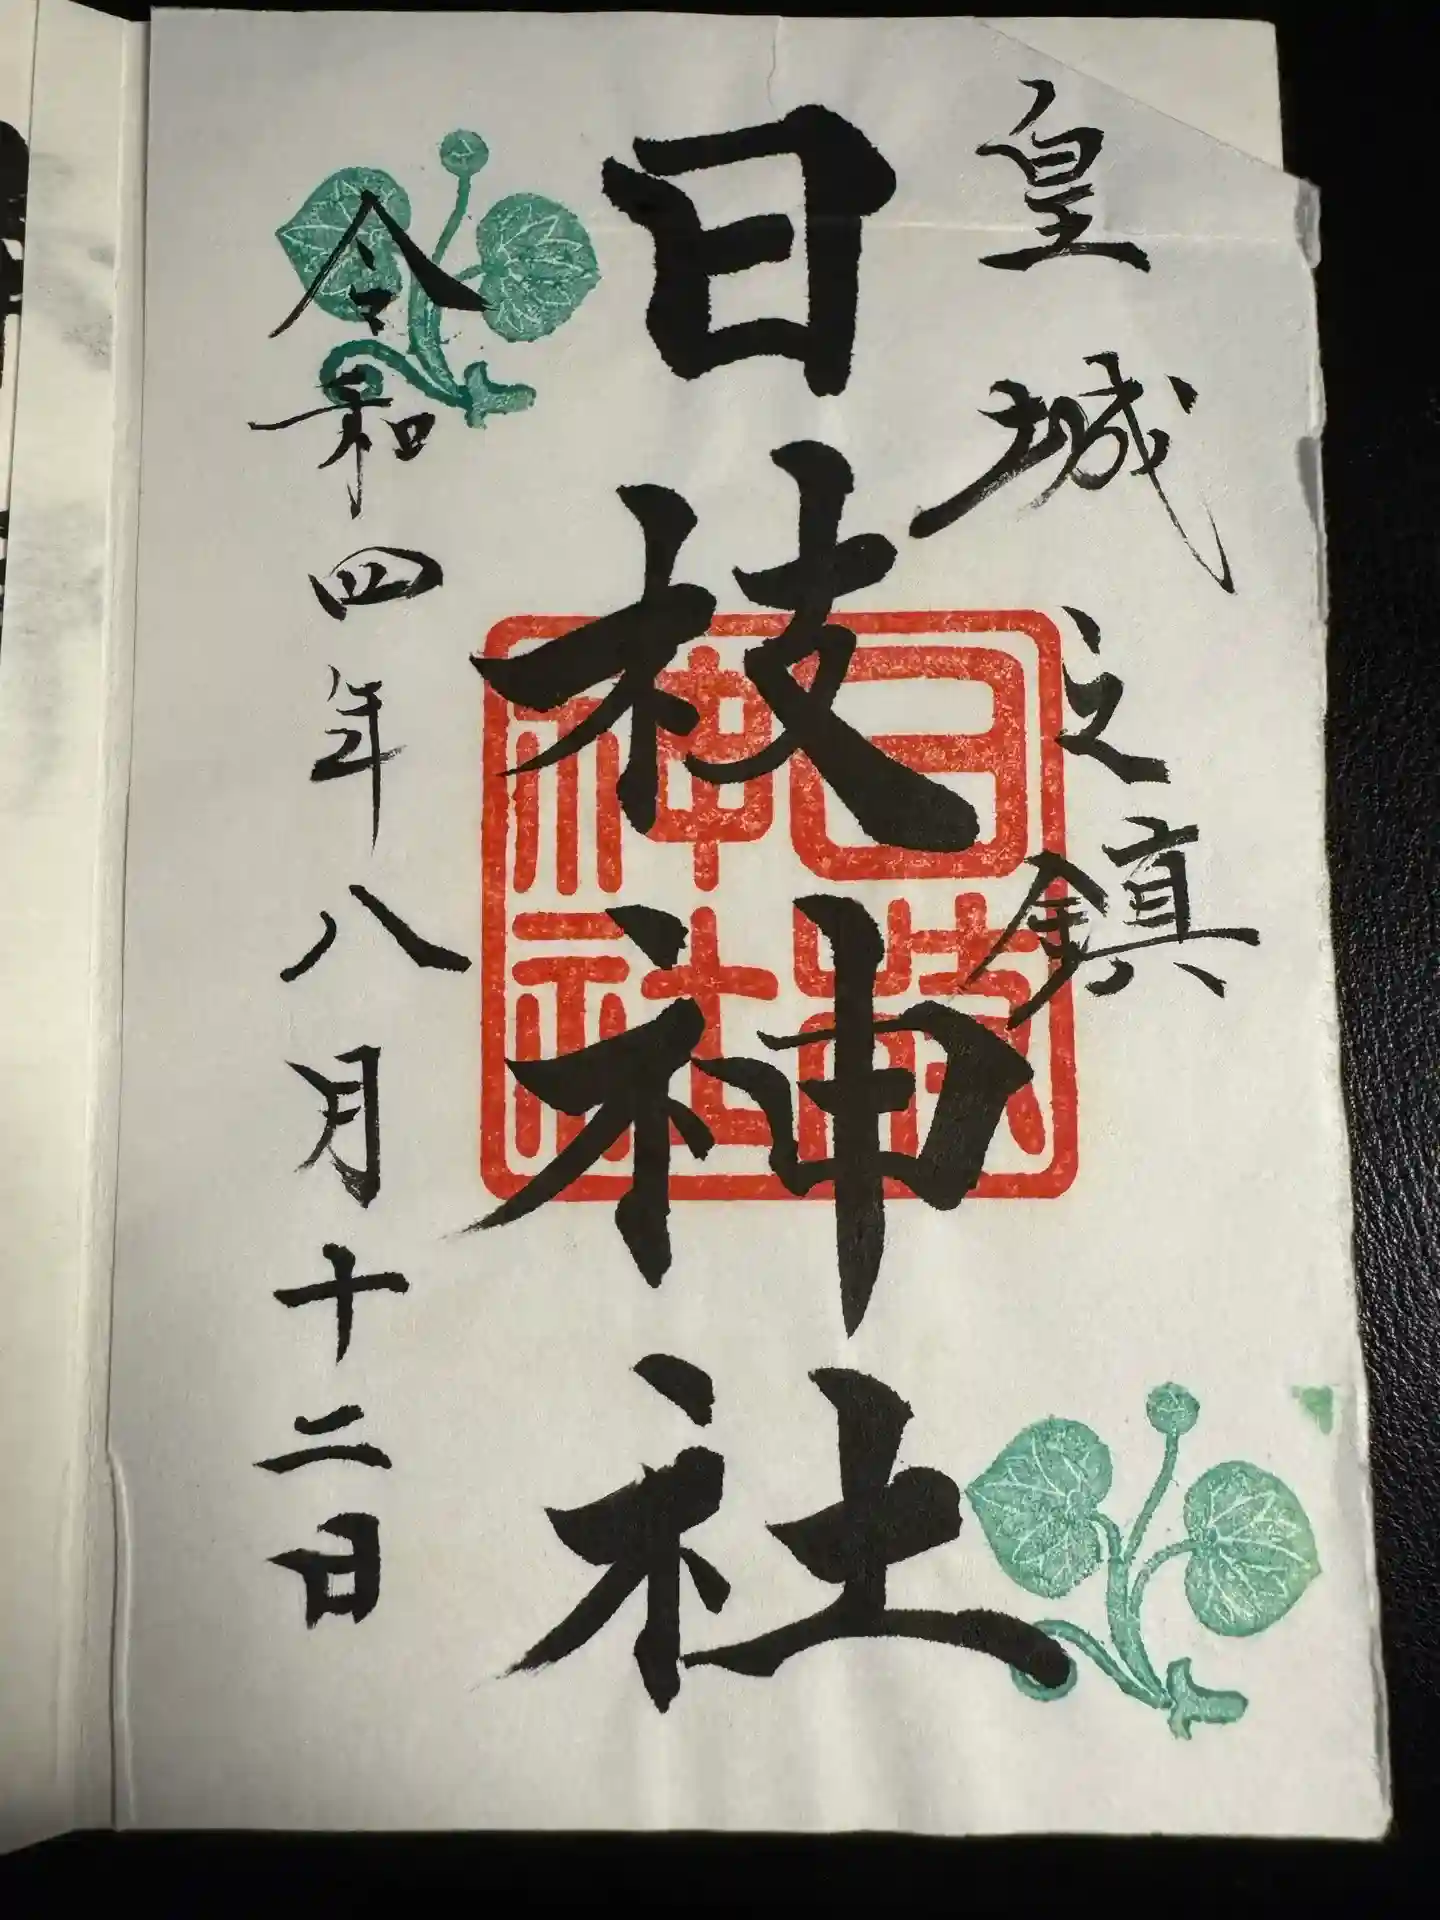 皇城之鎮
日枝神社
日枝神社
令和四年八月十二日